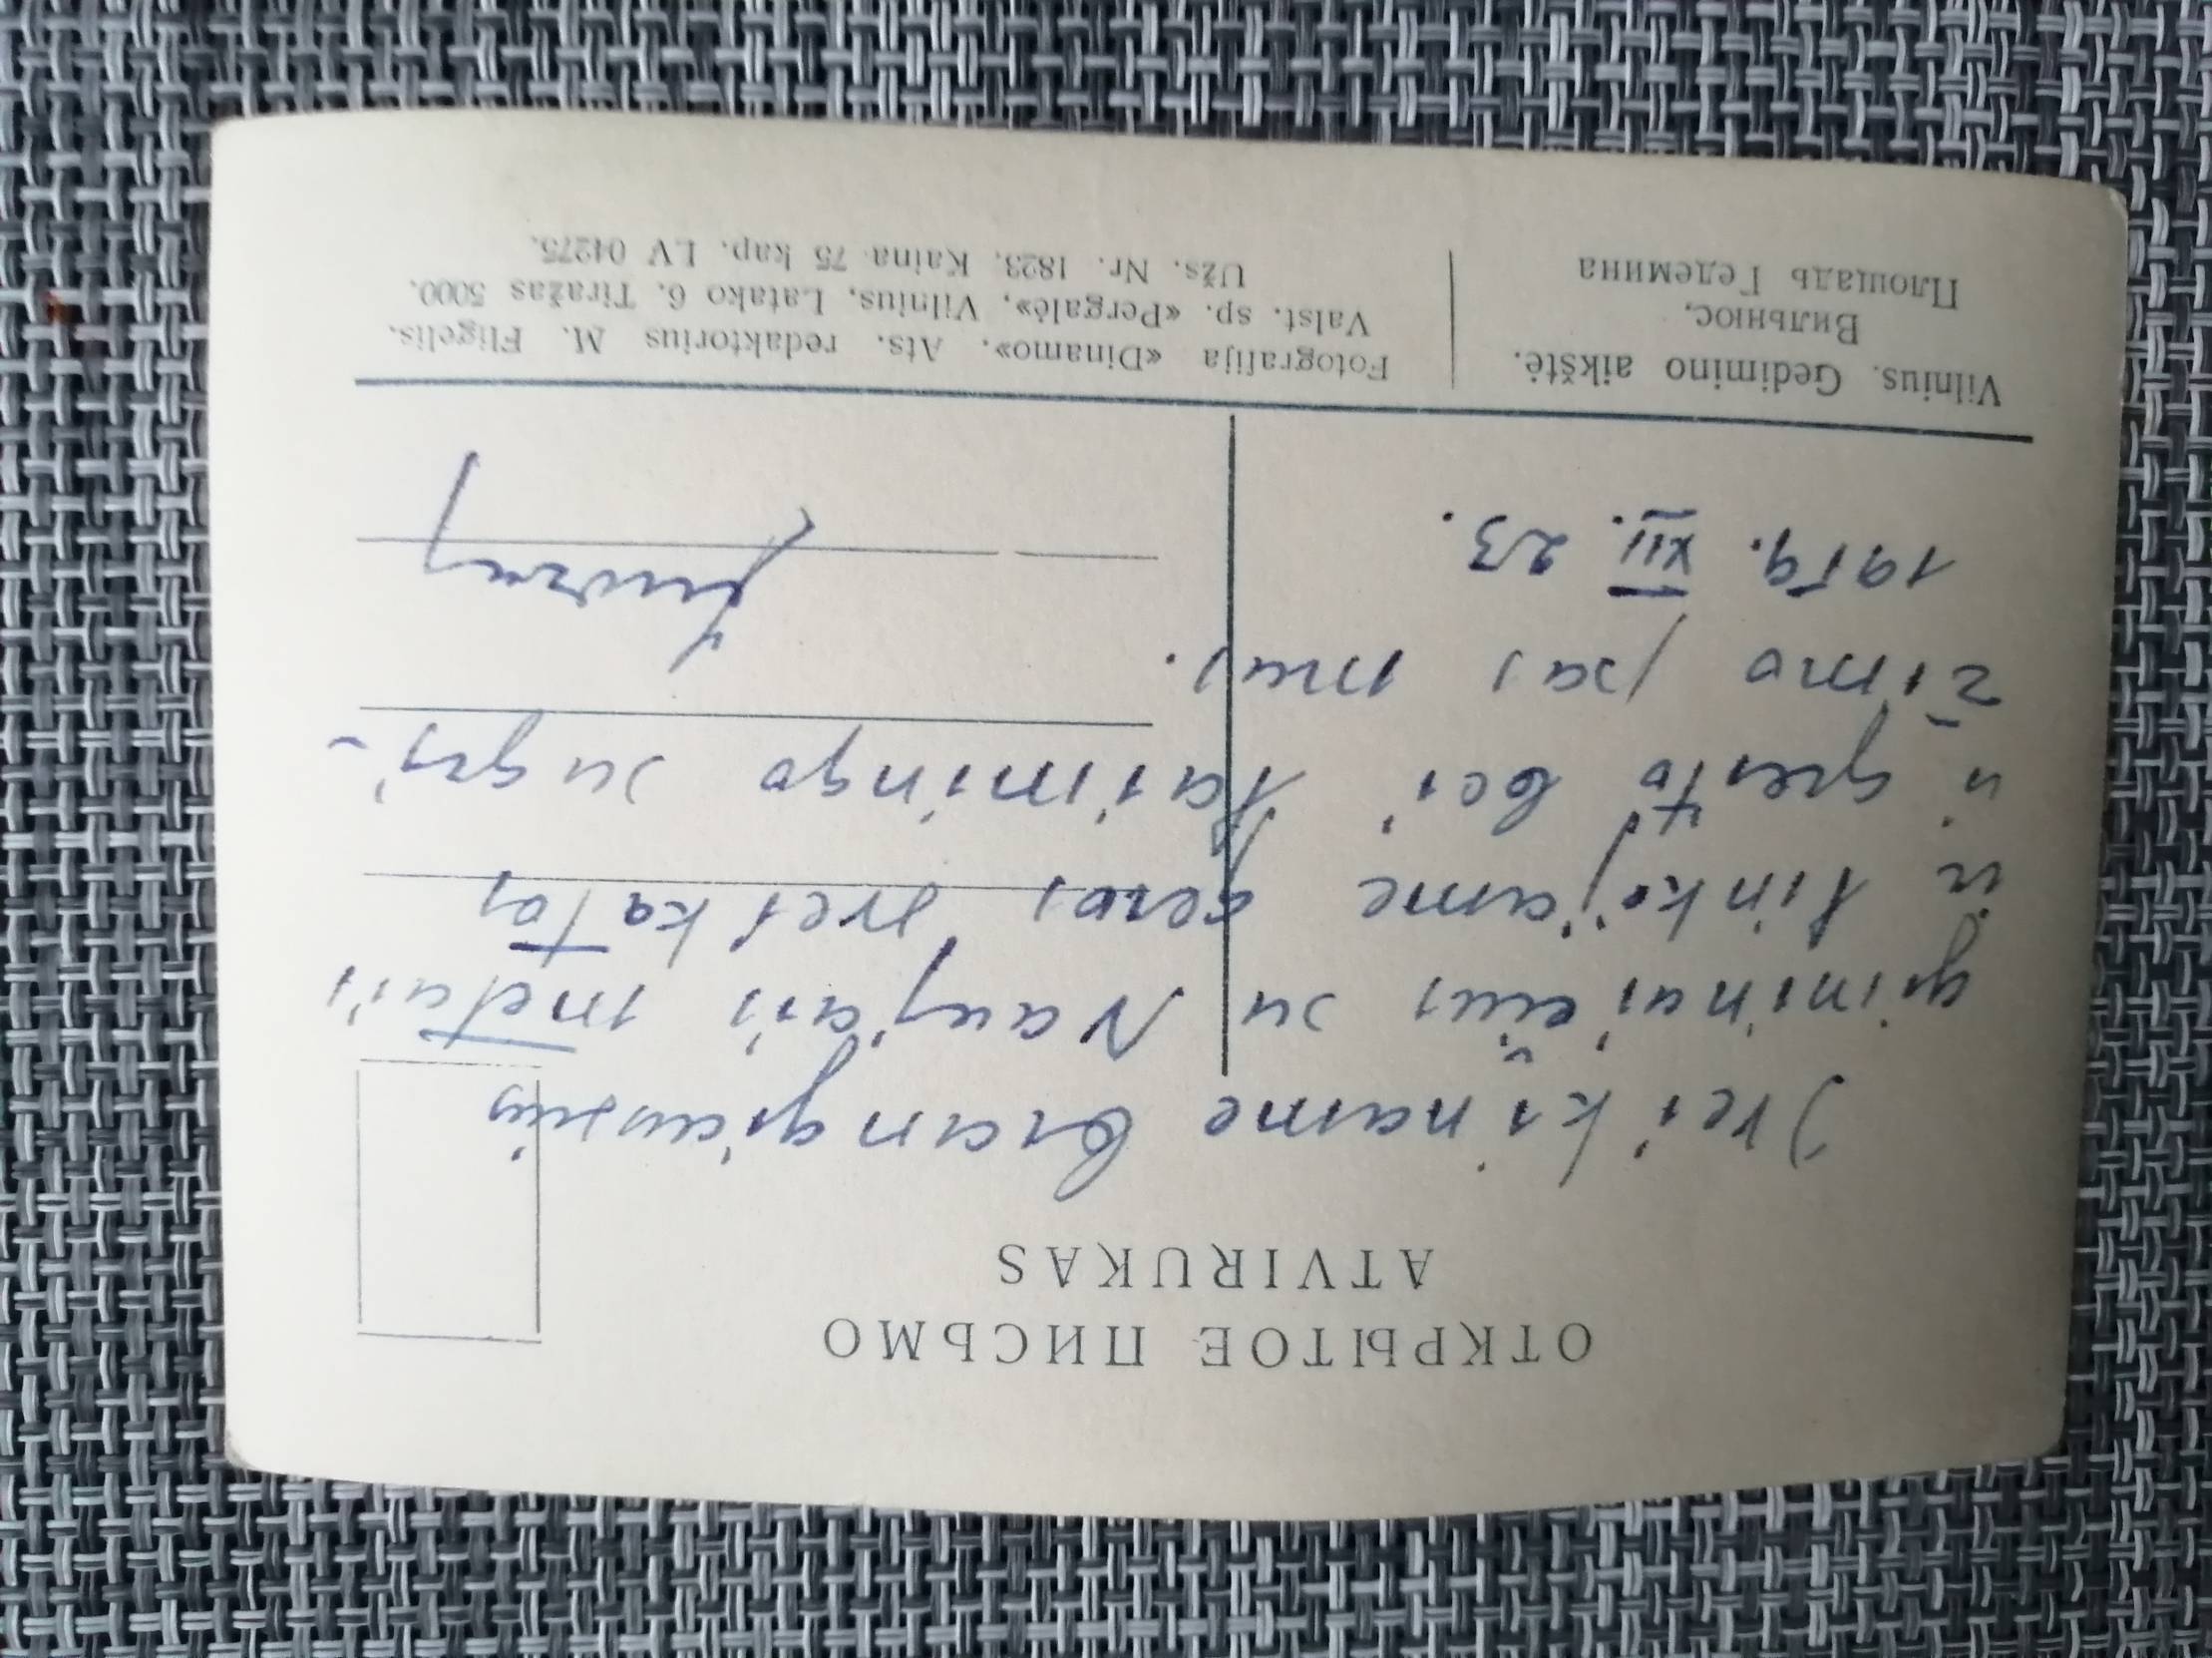 ОТКРЫТОЕ ПИСЬМО
ATVIRUKAS
Sveikiname brangiausius
giminaičius su Naujais metais
ir linkėjame geros sveikatos
ir greito bei laimingo sugrį-
žimo pas mus.
1959. XII. 23.
Vilnius. Gedimino aikštė.
Вильнюс.
Площадь Гедемина
Fotografija «Dinamo». Ats. redaktorius M. Fligelis.
Valst. sp. «Pergalė», Vilnius, Latako 6. Tiražas 5000.
Užs. Nr. 1823. Kaina 75 kap. LV 04275.